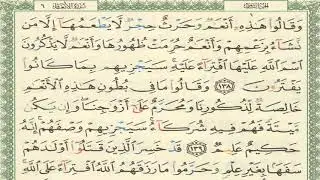 الجزء الثامن
سورة الأنعام ٦
وَقَالُوا۟ هَٰذِهِۦٓ أَنْعَٰمٌ وَحَرْثٌ حِجْرٌ لَّا يَطْعَمُهَآ إِلَّا مَن
نَّشَآءُ بِزَعْمِهِمْ وَأَنْعَٰمٌ حُرِّمَتْ ظُهُورُهَا وَأَنْعَٰمٌ لَّا يَذْكُرُونَ
ٱسْمَ ٱللَّهِ عَلَيْهَا ٱفْتِرَآءً عَلَيْهِ ۚ سَيَجْزِيهِم بِمَا كَانُوا۟
يَفْتَرُونَ ١٣٨ وَقَالُوا۟ مَا فِى بُطُونِ هَٰذِهِ ٱلْأَنْعَٰمِ
خَالِصَةٌ لِّذُكُورِنَا وَمُحَرَّمٌ عَلَىٰٓ أَزْوَٰجِنَا ۖ وَإِن يَكُن
مَّيْتَةً فَهُمْ فِيهِ شُرَكَآءُ ۚ سَيَجْزِيهِمْ وَصْفَهُمْ ۚ إِنَّهُۥ
حَكِيمٌ عَلِيمٌ ١٣٩ قَدْ خَسِرَ ٱلَّذِينَ قَتَلُوٓا۟ أَوْلَٰدَهُمْ
سَفَهًۢا بِغَيْرِ عِلْمٍ وَحَرَّمُوا۟ مَا رَزَقَهُمُ ٱللَّهُ ٱفْتِرَآءً عَلَى ٱللَّهِ ۚ